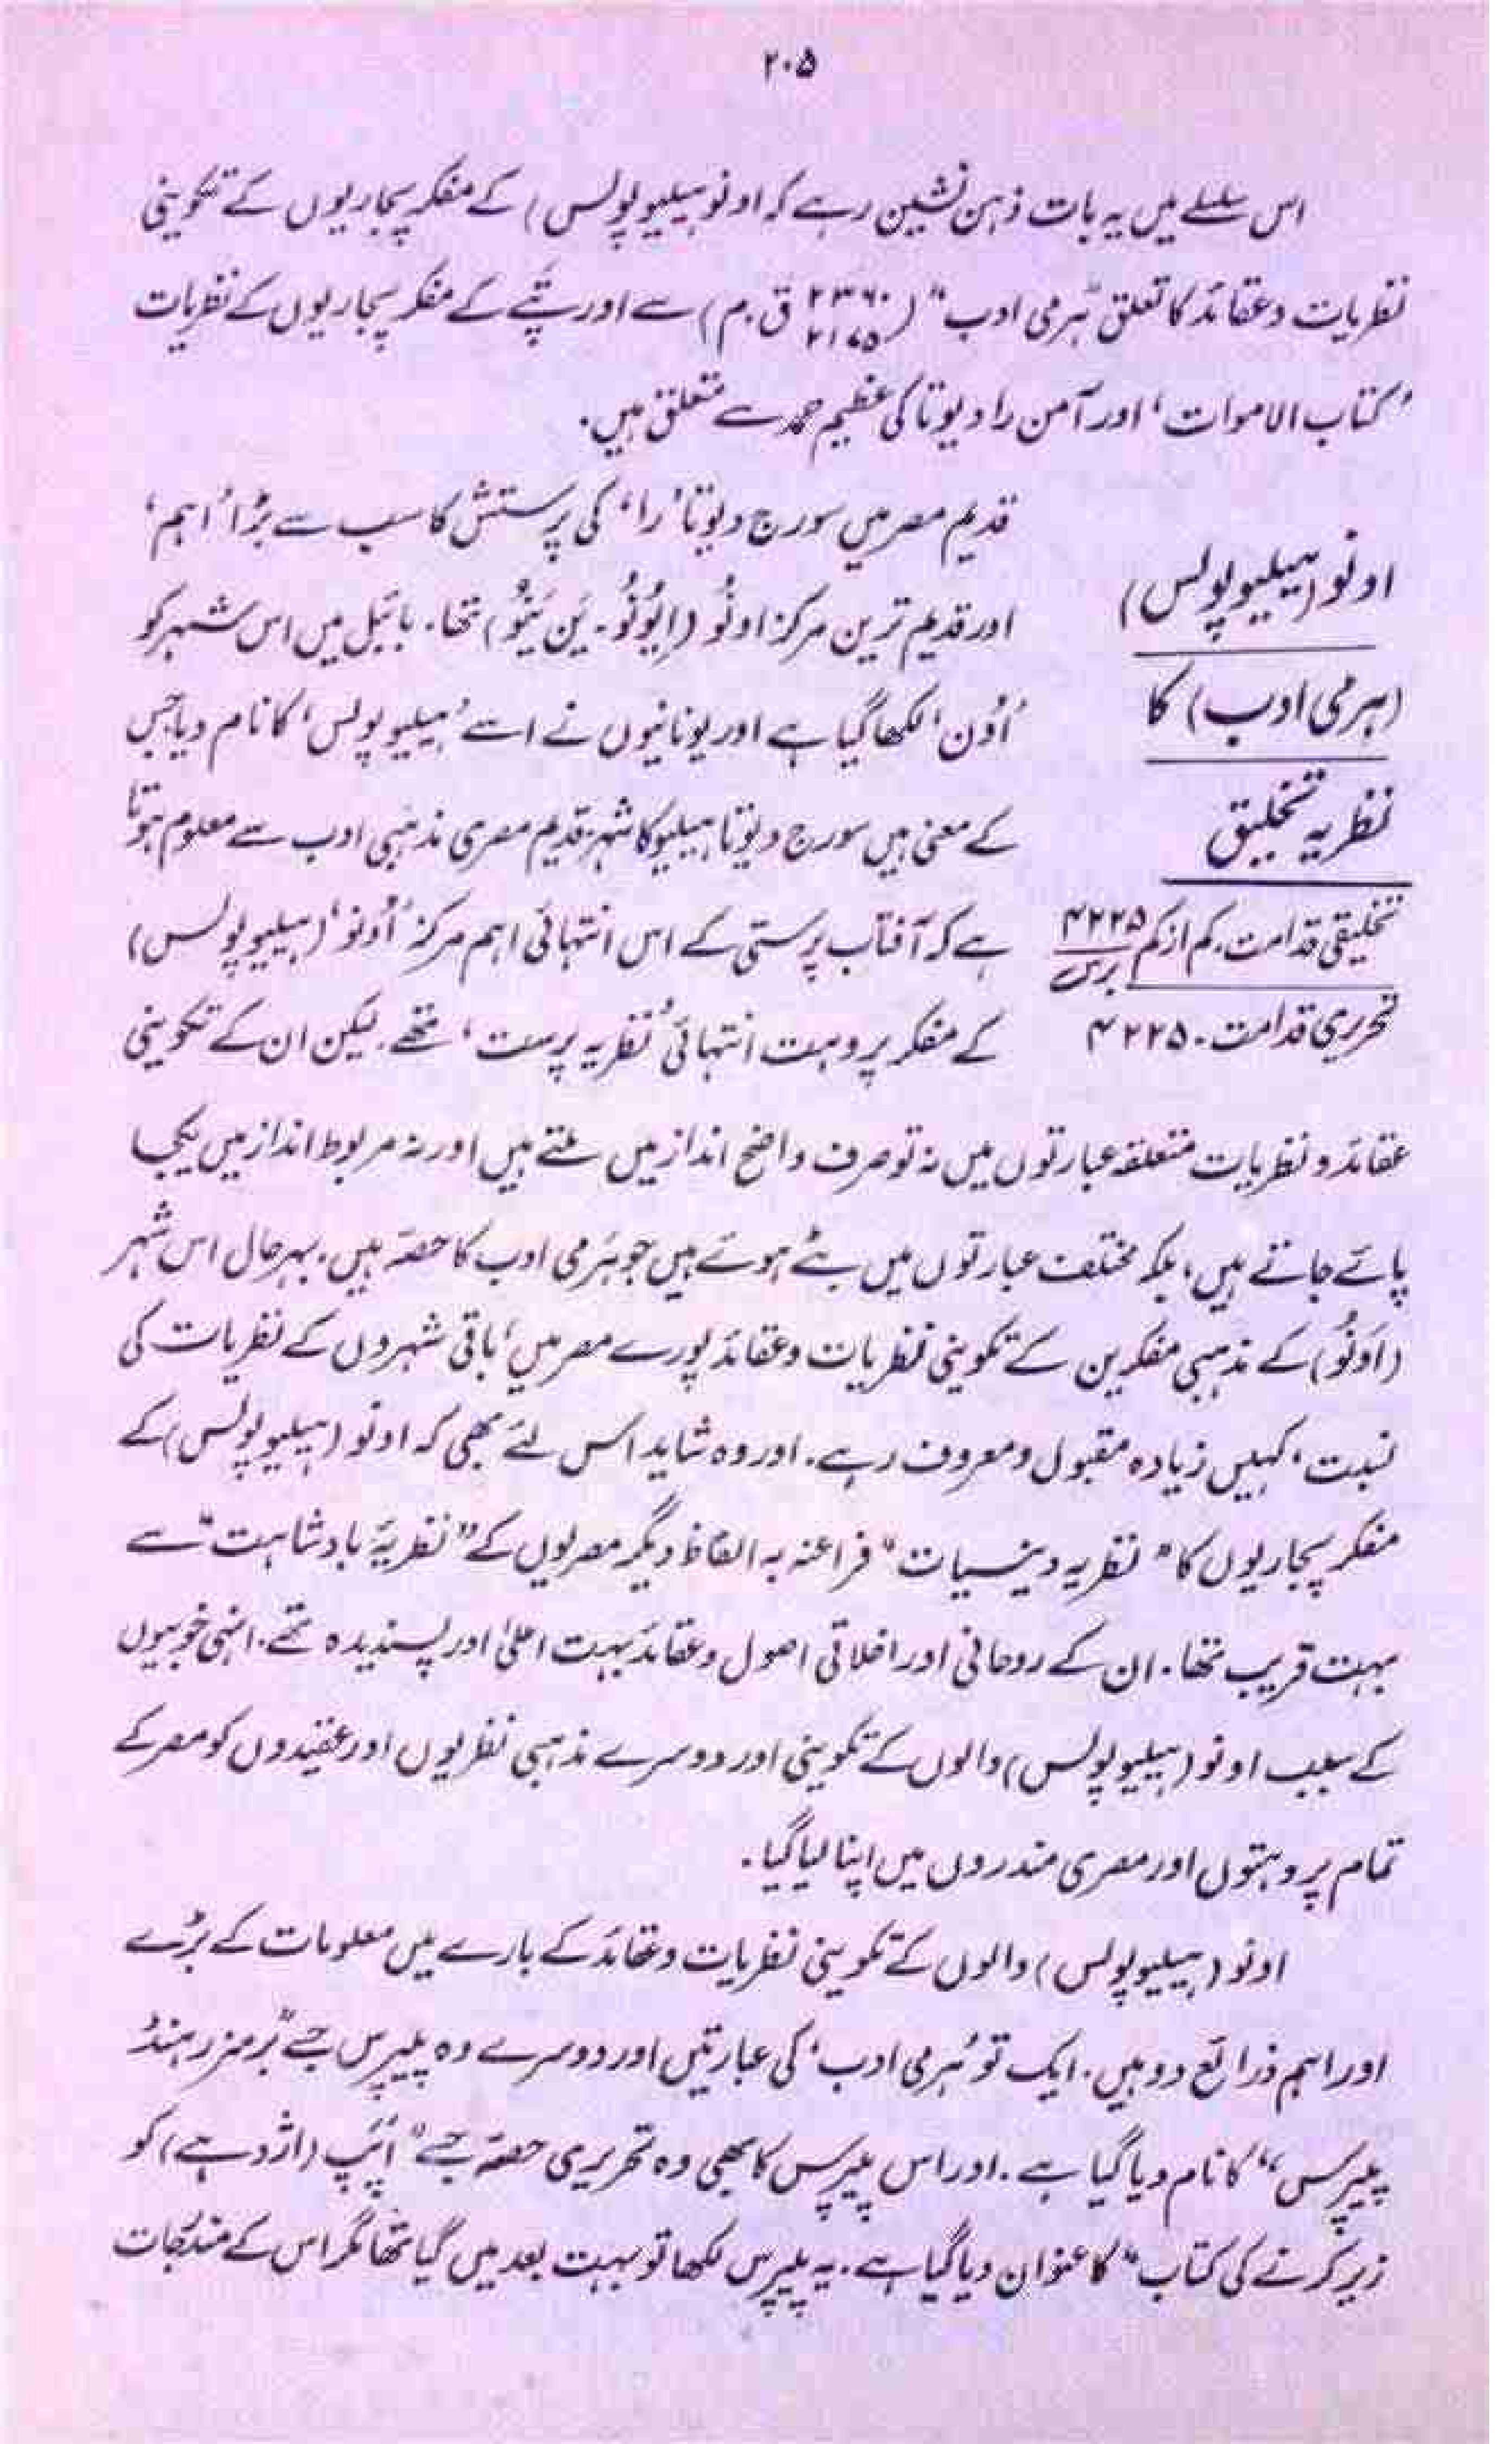 ۲۰۵
اس سلسلے میں یہ بات ذہن نشین رہے کہ اونو ہیلیوپولس) کے مفکر پجاریوں کے تکوینی
نظریات وعقائد کا تعلق "ہرمی ادب" (۲۳۶۰ ۲۱۷۵ ق.م) سے اور تپے کے مفکر پجاریوں کے نظریات
'کتاب الاموات' اور آمن را دیوتا کی عظیم حمد سے متعلق ہیں.
اونو (ہیلیوپولس)
(ہرمی ادب) کا
نظریہ تخلیق
تخلیقی قدامت. کم از کم ۴۲۲۵ برس
تحریری قدامت. ۴۲۲۵
قدیم مصر میں سورج دیوتا 'را' کی پرستش کا سب سے بڑا' اہم'
اور قدیم ترین مرکز اونُو (اِیُونُو۔ یَن یَنُو) تھا. بائیبل میں اس شہر کو
'اُون' لکھا گیا ہے اور یونانیوں نے اسے 'ہیلیوپولس' کا نام دیا جس
کے معنی ہیں سورج دیوتا ہیلیو کا شہر. قدیم مصری مذہبی ادب سے معلوم ہوتا
ہے کہ آفتاب پرستی کے اس انتہائی اہم مرکز 'اُونو' (ہیلیوپولس)
کے مفکر پروہت انتہائی 'نظریہ پرست' تھے. لیکن ان کے تکوینی
عقائد و نظریات متعلقہ عبارتوں میں نہ تو صرف واضح انداز میں ملتے ہیں اور نہ مربوط انداز میں یکجا
پائے جاتے ہیں، بلکہ مختلف عبارتوں میں بٹے ہوئے ہیں جو ہرمی ادب کا حصہ ہیں. بہرحال اس شہر
(اَونُو) کے مذہبی مفکرین کے تکوینی نظریات وعقائد پورے مصر میں' باقی شہروں کے نظریات کی
نسبت' کہیں زیادہ مقبول ومعروف رہے. اور وہ شاید اس لئے بھی کہ اونو (ہیلیوپولس) کے
مفکر پجاریوں کا "نظریہ دینیسیات" فراعنہ بہ الفاظ دیگر مصریوں کے "نظریۂ بادشاہت" سے
بہت قریب تھا. ان کے روحانی اور اخلاقی اصول وعقائد بہت اعلیٰ اور پسندیدہ تھے. انہی خوبیوں
کے سبب اونو (ہیلیوپولس) والوں کے تکوینی اور دوسرے مذہبی نظریوں اور عقیدوں کو مصر کے
تمام پروہتوں اور مصری مندروں میں اپنا لیا گیا.
اونو (ہیلیوپولس) والوں کے تکوینی نظریات وعقائد کے بارے میں معلومات کے بڑے
اور اہم ذرائع دو ہیں. ایک تو 'ہرمی ادب' کی عبارتیں اور دوسرے وہ پیپرس جسے "برمنر رہنڈ
پیپرس" کا نام دیا گیا ہے. اور اس پیپرس کا بھی وہ تحریری حصہ جسے "اَپَپ (اژدہے) کو
زیر کرنے کی کتاب" کا عنوان دیا گیا ہے. یہ پیپرس لکھا تو بہت بعد میں گیا تھا مگر اس کے مندرجات